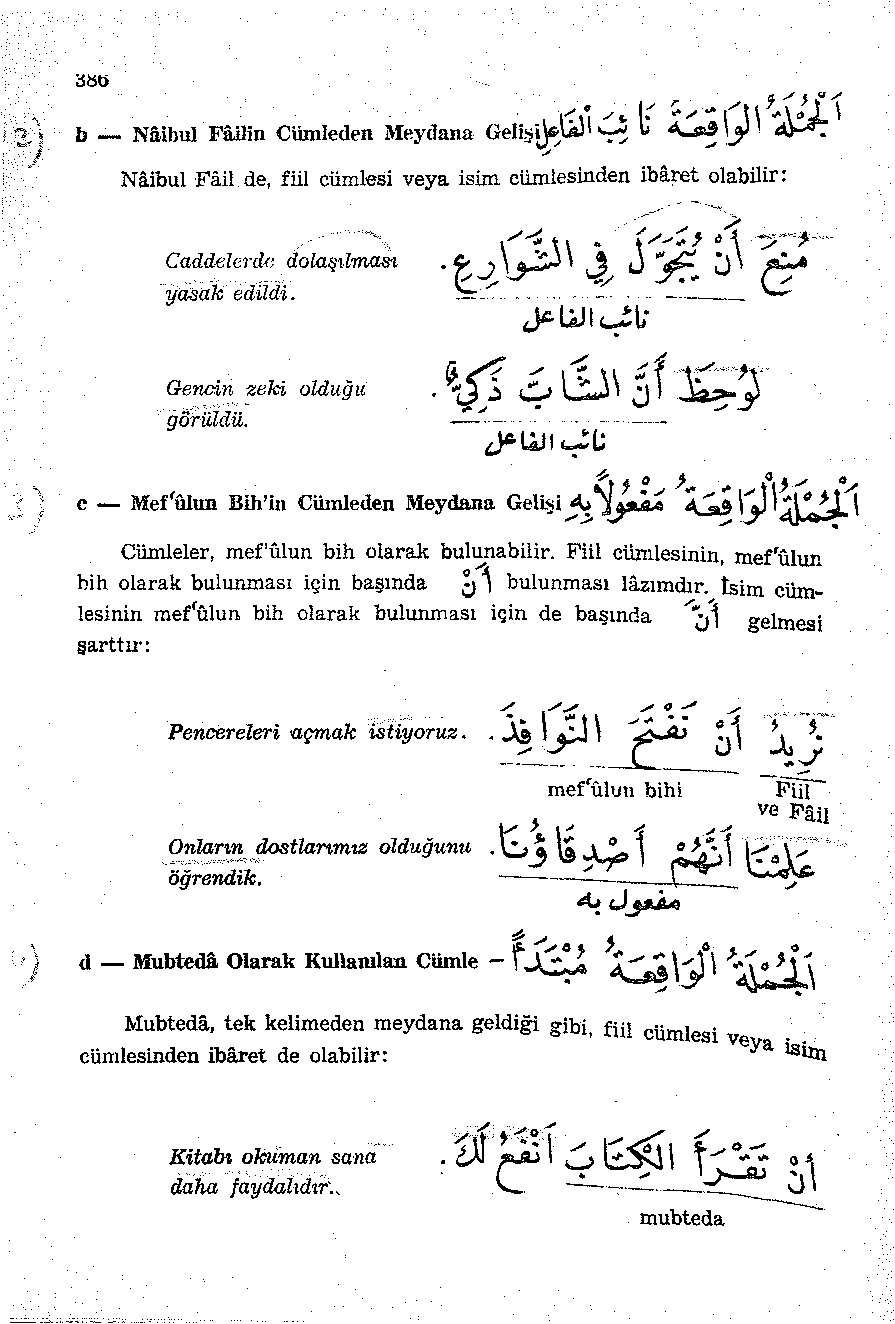 386
b — Nâibul Fâilin Cümleden Meydana Gelişi اَلْجُمْلَةُ الْوَاقِعَةُ نَائِبَ الْفَاعِلِ
Nâibul Fâil de, fiil cümlesi veya isim cümlesinden ibâret olabilir:
Caddelerde dolaşılması مُنِعَ أَنْ يُتَجَوَّلَ فِي الشَّوَارِعِ .
yasak edildi.
نائب الفاعل
Gencin zeki olduğu لُوحِظَ أَنَّ الشَّابَّ ذَكِيٌّ .
görüldü.
نائب الفاعل
c — Mefʿûlun Bih'in Cümleden Meydana Gelişi اَلْجُمْلَةُ الْوَاقِعَةُ مَفْعُولًا بِهِ
Cümleler, mef'ûlun bih olarak bulunabilir. Fiil cümlesinin, mefʿûlun
bih olarak bulunması için başında أَنْ bulunması lâzımdır. İsim cüm-
lesinin mefʿûlun bih olarak bulunması için de başında أَنَّ gelmesi
şarttır:
Pencereleri açmak istiyoruz. نُرِيدُ أَنْ نَفْتَحَ النَّوَافِذَ .
mefʿûlun bihi Fiil
ve Fâil
Onların dostlarımız olduğunu عَلِمْنَا أَنَّهُمْ أَصْدِقَاؤُنَا .
öğrendik.
مفعول به
d — Mubtedâ Olarak Kullanılan Cümle – اَلْجُمْلَةُ الْوَاقِعَةُ مُبْتَدَأً
Mubtedâ, tek kelimeden meydana geldiği gibi, fiil cümlesi veya isim
cümlesinden ibâret de olabilir:
Kitabı okuman sana أَنْ تَقْرَأَ الْكِتَابَ اَنْفَعُ لَكَ .
daha faydalıdır.
mubteda